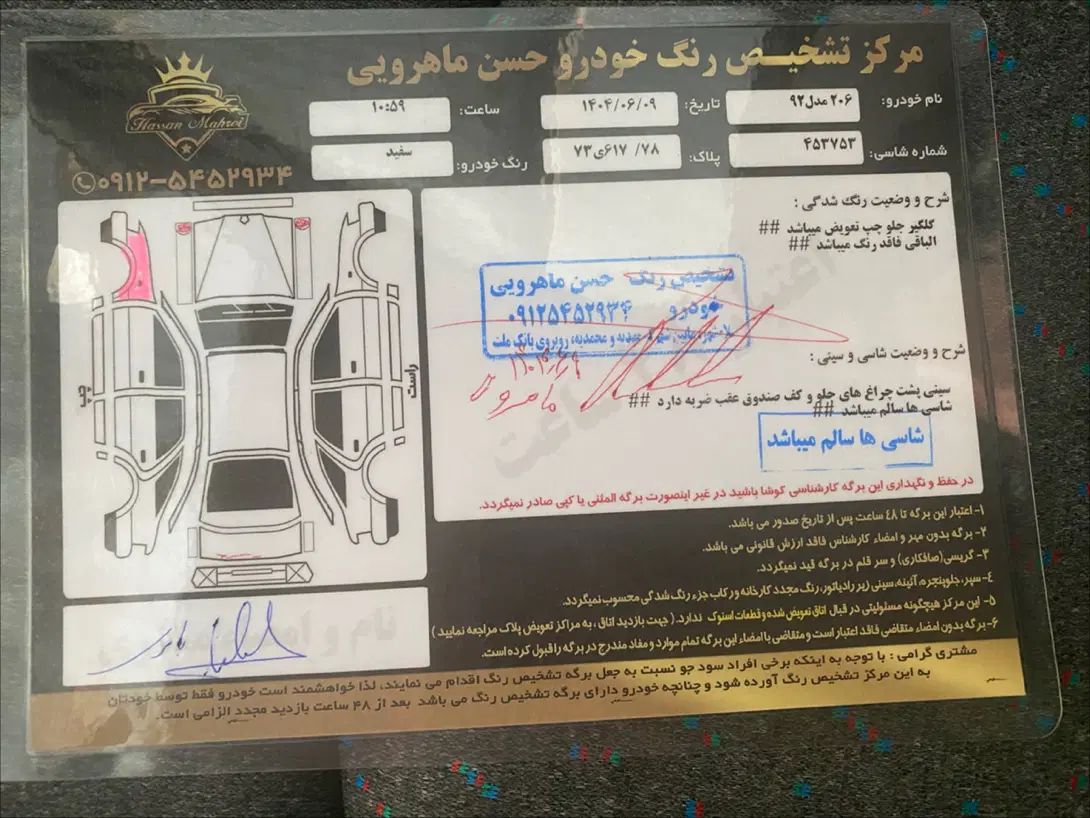 مرکز تشخیـص رنگ خودرو حسن ماهرویی
Hassan Mahroi
۰۹۱۲-۵۴۵۲۹۳۴
نام خودرو: ۲۰۶ مدل۹۲ تاریخ: ۱۴۰۴/۰۶/۰۹ ساعت: ۱۰:۵۹
شماره شاسی: ۴۵۳۷۵۳ پلاک: ۷۸/ ۶۱۷ی۷۳ رنگ خودرو: سفید
شرح و وضعیت رنگ شدگی :
گلگیر جلو چپ تعویض میباشد ##
الباقی فاقد رنگ میباشد ##
تشخیص رنگ حسن ماهرویی
خودرو ۰۹۱۲۵۴۵۲۹۳۴
و محمدیه، روبروی بانک ملت
شرح و وضعیت شاسی و سینی :
سینی پشت چراغ های جلو و کف صندوق عقب ضربه دارد ##
شاسی ها سالم میباشد ##
شاسی ها سالم میباشد
چپ
راست
در حفظ و نگهداری این برگه کارشناسی کوشا باشید در غیر اینصورت برگه المثنی یا کپی صادر نمیگردد.
۱- اعتبار این برگه تا ٤٨ ساعت پس از تاریخ صدور می باشد.
۲- برگه بدون مهر و امضاء کارشناس فاقد ارزش قانونی می باشد.
۳- گریسی(صافکاری) و سر قلم در برگه قید نمیگردد.
٤- سپر، جلوپنجره، آئینه، سینی زیر رادیاتور، رنگ مجدد کارخانه و رکاب جزء رنگ شدگی محسوب نمیگردد.
۵- این مرکز هیچگونه مسئولیتی در قبال اتاق تعویض شده و قطعات استوک ندارد. ( جهت بازدید اتاق ، به مراکز تعویض پلاک مراجعه نمایید )
۶- برگه بدون امضاء متقاضی فاقد اعتبار است و متقاضی با امضاء این برگه تمام موارد و مفاد مندرج در برگه را قبول کرده است.
مشتری گرامی : با توجه به اینکه برخی افراد سود جو نسبت به جعل برگه تشخیص رنگ اقدام می نمایند، لذا خواهشمند است خودرو فقط توسط خودتان
به این مرکز تشخیص رنگ آورده شود و چنانچه خودرو دارای برگه تشخیص رنگ می باشد بعد از ۴۸ ساعت بازدید مجدد الزامی است.